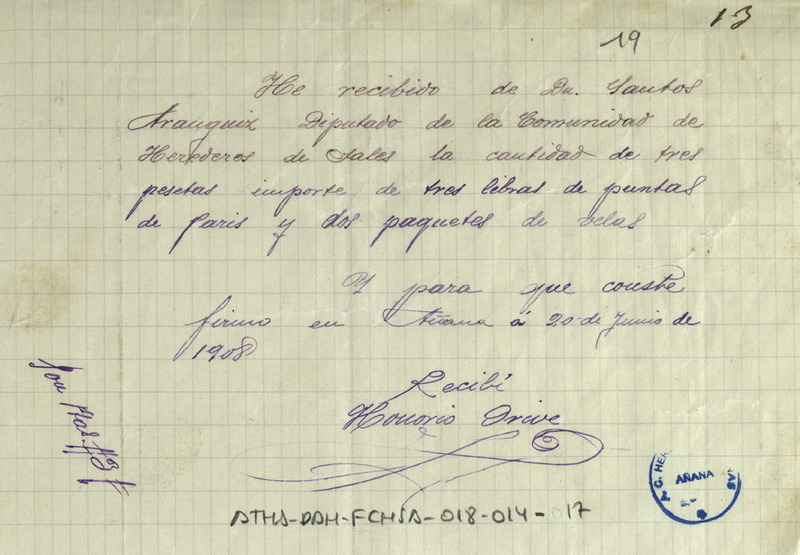 13
19
He recibido de Dn. Santos
Aranguiz Diputado de la Comunidad de
Herederos de Sales la cantidad de tres
pesetas importe de tres libras de puntas
de Paris y dos paquetes de velas
Y para que conste
firmo en Añana á 20 de Junio de
1908
Recibí
Honorio Orive
AÑANA
ATHA-DAH-FCHSA-018-014-17